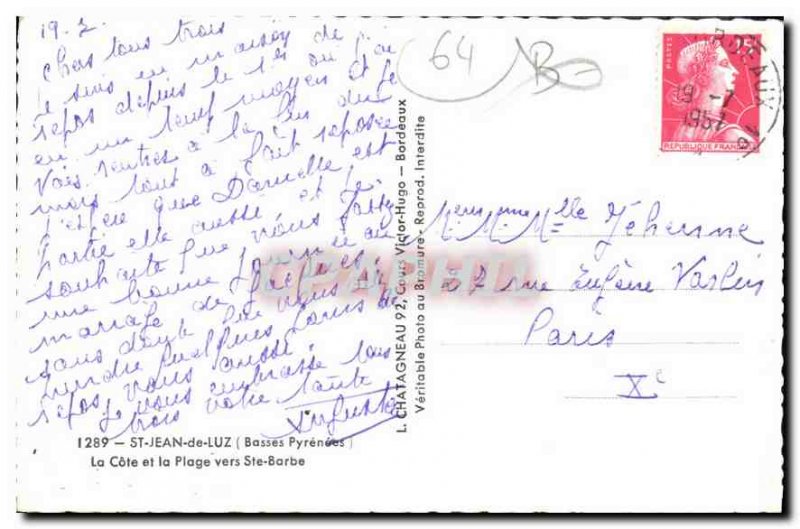 19.2.
Chers tous trois
Je suis en maison de
repos depuis le 1er où j'ai
eu un neuf moyen et je
vais rentrer à la fin du
mois tout à fait reposée
J'espère que Danielle est
partie elle aussi et je
souhaite que vous passiez
une bonne journée au
mariage de Jacques
sans doute que vous
prendre quelques jours de
repos vous aussi.
Je vous embrasse tous
trois votre tante
Augusta
1289 — ST-JEAN-de-LUZ (Basses Pyrénées)
La Côte et la Plage vers Ste-Barbe
L. CHATAGNEAU 92, Cours Victor-Hugo — Bordeaux
Véritable Photo au Bromure - Reprod. Interdite
64 B
POSTES
25F
REPUBLIQUE FRANÇAISE
BORDEAUX
1957
CPAPHIL
Mlle
rue Eugène Varlin
Paris
Xe